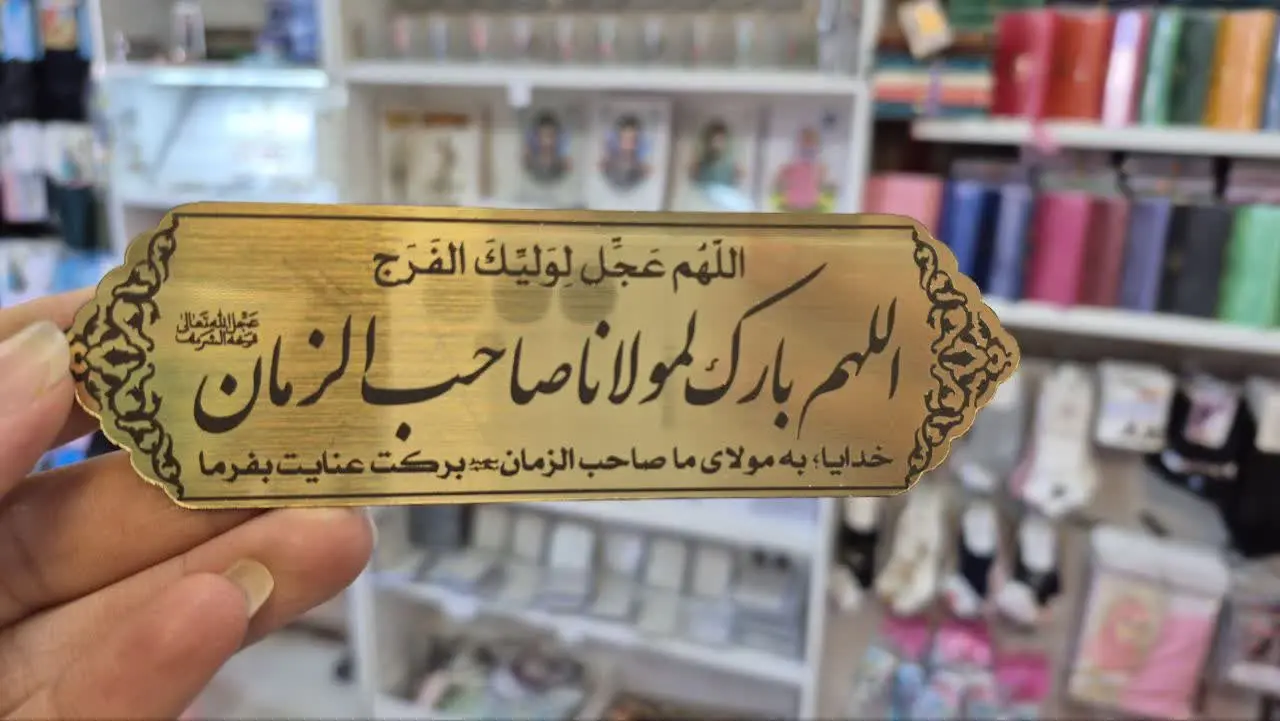 اللّهُم عَجِّل لِوَليِّكَ الفَرَج
اللهم بارک لمولانا صاحب الزمان
عجل الله تعالی فرجه الشریف
خدایا؛ به مولای ما صاحب الزمان برکت عنایت بفرما